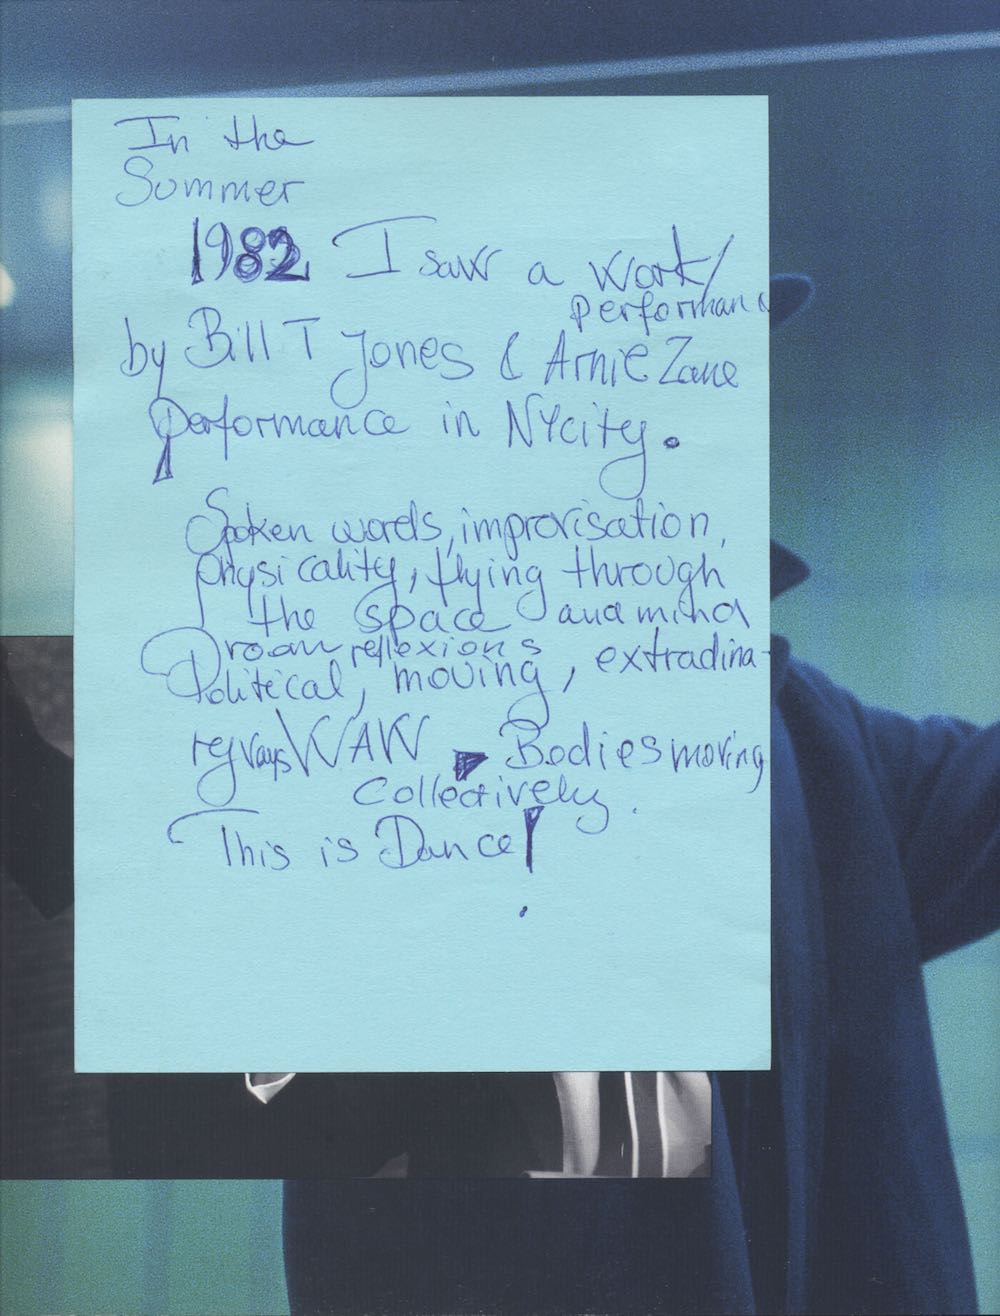 In the
Summer
1982 I saw a work/
performanc
by Bill T Jones & Arnie Zane
performance in NYcity.
Spoken words, improvisation,
physicality, flying through
the space and mind
Dream reflexions
Political, moving, extradina-
ry WAW Bodies moving
Collectively.
This is Dance!